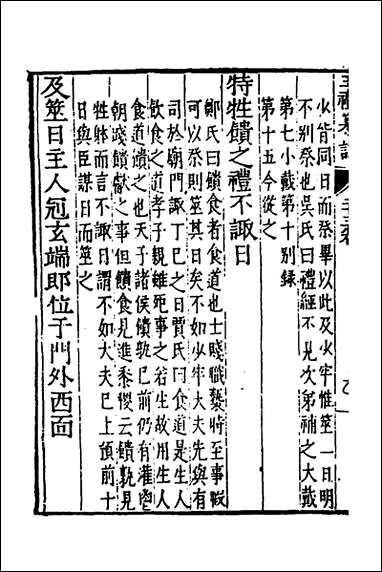 少皆同日而祭畢以此及少牢惟筮一日明
不別祭也吳氏曰禮經不見次第補之大戴
第七小戴第十別錄
第十五今從之
特牲饋之禮不諏日
鄭氏曰饋食者食道也士賤職䙝時至事暇
可以祭則筮其日矣不如少牢大夫先與有
司於廟門諏丁巳之日賈氏曰食道是生人
飲食之道孝子親雖死事之若生故用生人
食道饋之也天子諸侯饋孰已前仍有灌鬯
朝踐饋獻之事但饋食見進黍稷云饋孰見
牲躰而言不諏日謂不如大夫已上預前十
日與臣謀日而筮之
及筮日主人冠玄端即位于門外西面